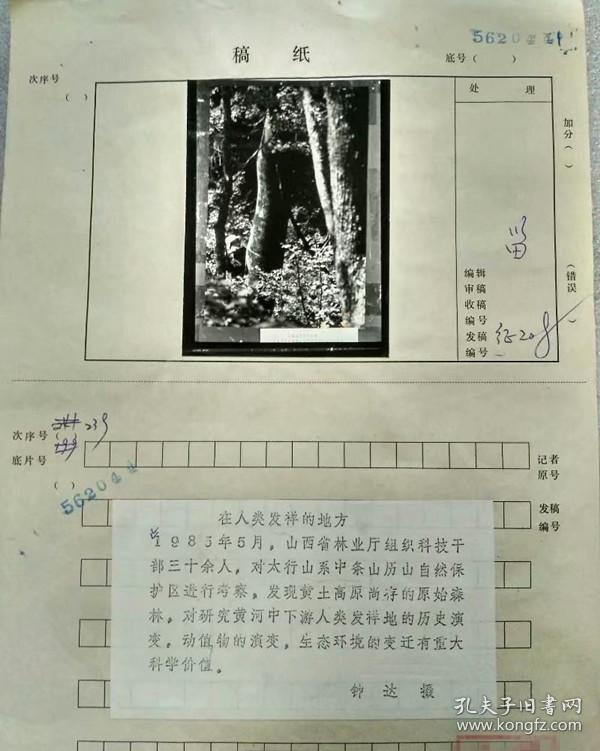 稿 纸
底号( )
次序号
( )
处 理
加分( )
(错误 )
留
编辑
审稿
收稿
编号
发稿
编号
次序号
239
底片号
( )
记者
原号
发稿
编号
在人类发祥的地方
1983年5月，山西省林业厅组织科技干
部三十余人，对太行山系中条山历山自然保
护区进行考察，发现黄土高原尚存的原始森
林，对研究黄河中下游人类发祥地的历史演
变，动值物的演变，生态环境的变迁有重大
科学价值。
钟 达 摄
孔夫子旧书网
www.kongfz.com